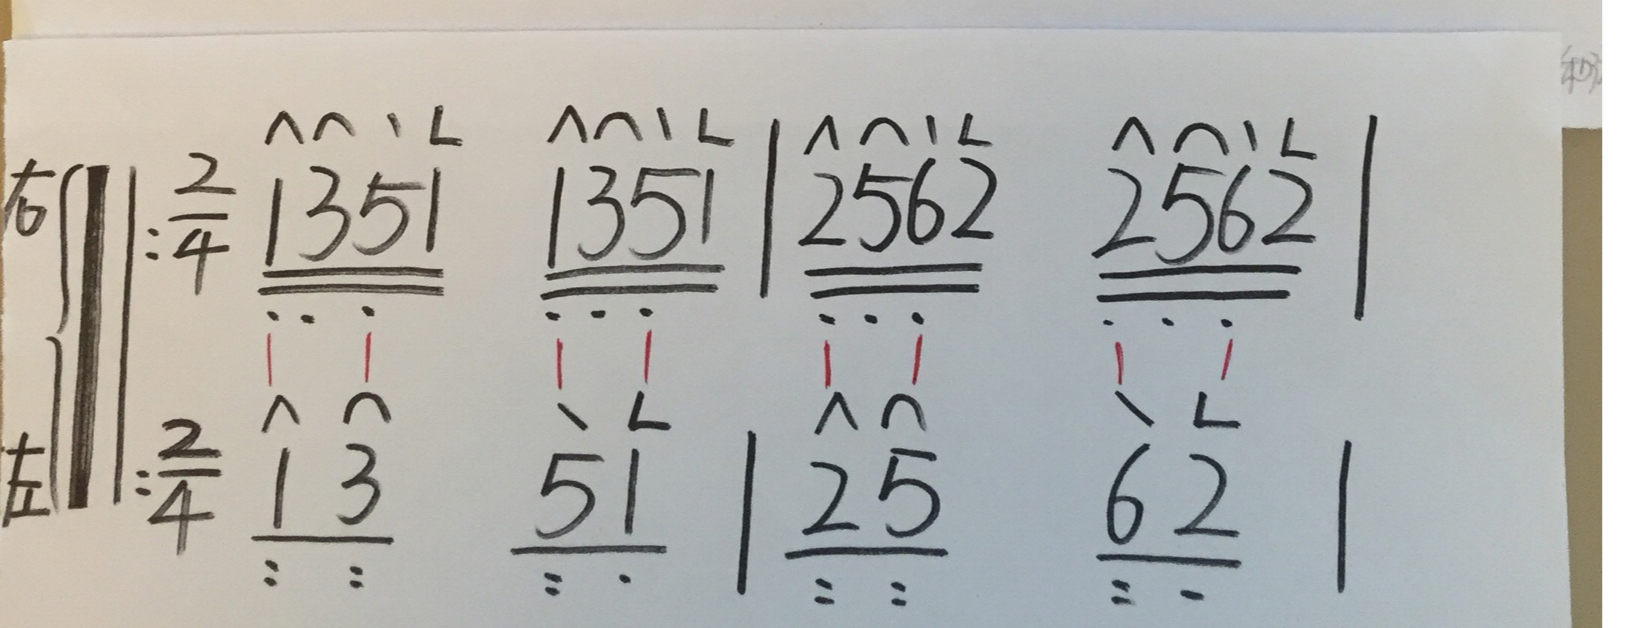 右 2/4 1351 1351 | 2562 2562 |
左 2/4 13 51 | 25 62 |